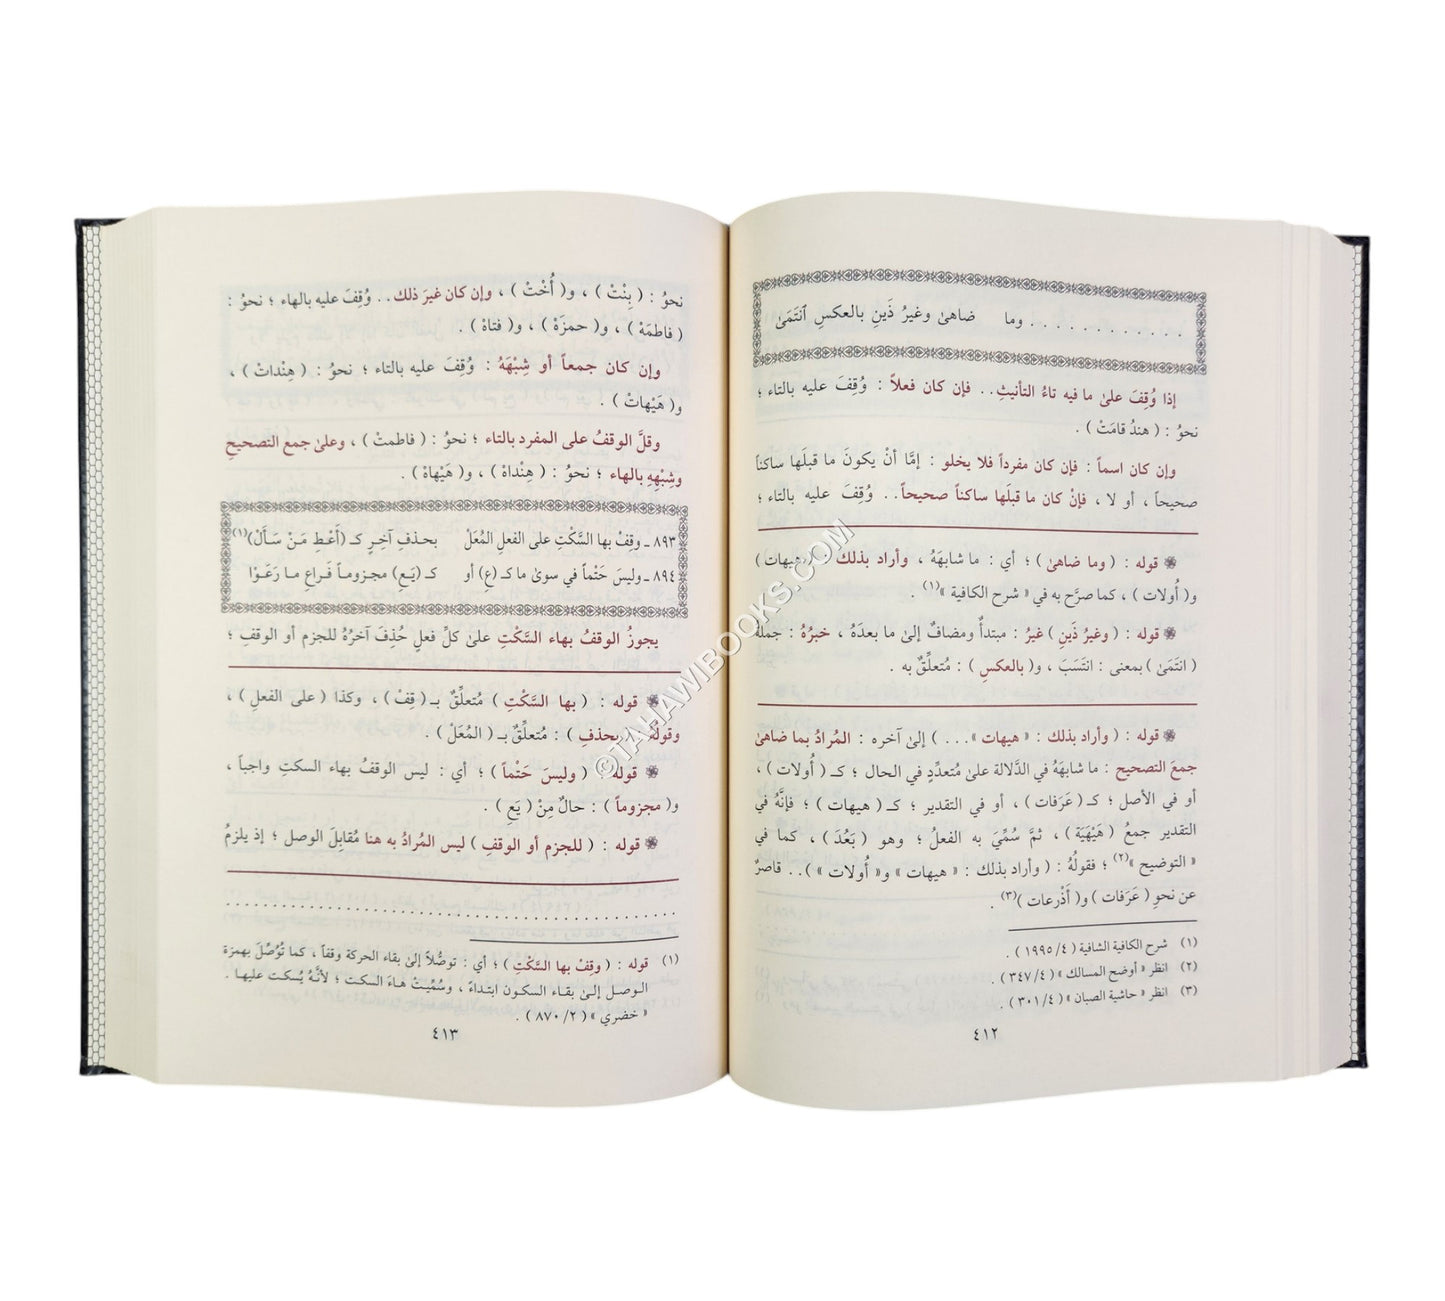 . . . . . . . . . . . . وما ضاهىٰ وغيرُ ذَينِ بالعكسِ ٱنتَمَىٰ
إذا وُقِفَ علىٰ ما فيه تاءُ التأنيثِ.. فإن كان فعلاً : وُقِفَ عليه بالتاء ؛
نحوُ : ( هندُ قامَتْ ) .
وإن كان اسماً : فإن كان مفرداً فلا يخلو : إمَّا أنْ يكونَ ما قبلَها ساكناً
صحيحاً ، أو لا ، فإنْ كان ما قبلَها ساكناً صحيحاً.. وُقِفَ عليه بالتاء ؛
❁ قوله : ( وما ضاهىٰ ) ؛ أي : ما شابهَهُ ، وأراد بذلك ( هيهات )
و( أُولات ) ، كما صرَّح به في « شرح الكافية »(١) .
❁ قوله : ( وغيرُ ذَينِ ) غيرُ : مبتدأٌ ومضافٌ إلىٰ ما بعدَهُ ، خبرُهُ : جملةُ
( انتَمَىٰ ) بمعنى : انتَسَبَ ، و( بالعكسِ ) : مُتعلِّقٌ به .
❁ قوله : ( وأراد بذلك : « هيهات »... ) إلىٰ آخره : المُرادُ بما ضاهىٰ
جمعَ التصحيح : ما شابهَهُ في الدَّلالة علىٰ مُتعدِّدٍ في الحال ؛ كـ( أُولات ) ،
أو في الأصل ؛ كـ( عَرَفات ) ، أو في التقدير ؛ كـ( هيهات ) ؛ فإنَّهُ في
التقدير جمعُ ( هَيْهَيَة ) ، ثمَّ سُمِّيَ به الفعلُ ؛ وهو ( بَعُدَ ) ، كما في
« التوضيح »(٢) ؛ فقولُهُ : ( وأراد بذلك : « هيهات » و« أُولات » ).. قاصرٌ
عن نحوِ ( عَرَفات ) و( أَذْرعات )(٣) .
(١) شرح الكافية الشافية ( ٤/ ١٩٩٥ ) .
(٢) انظر « أوضح المسالك » ( ٤/ ٣٤٧ ) .
(٣) انظر « حاشية الصبان » ( ٤/ ٣٠١ ) .
٤١٢
نحوُ : ( بِنْتْ ) ، و( أُخْتْ ) ، وإن كان غيرَ ذلك.. وُقِفَ عليه بالهاء ؛ نحوُ :
( فاطمَهْ ) ، و( حمزَهْ ) ، و( فتاهْ ) .
وإن كان جمعاً أو شِبْهَهُ : وُقِفَ عليه بالتاء ؛ نحوُ : ( هِنْداتْ ) ،
و( هَيْهاتْ ) .
وقلَّ الوقفُ على المفرد بالتاء ؛ نحوُ : ( فاطمتْ ) ، وعلىٰ جمع التصحيحِ
وشِبْهِهِ بالهاء ؛ نحوُ : ( هِنْداهْ ) ، و( هَيْهاهْ ) .
٨٩٣ ـ وقِفْ بها السَّكْتِ على الفعلِ المُعَلْ بحذفِ آخِرٍ كـ (أَعْطِ مَنْ سَأَلْ)(١)
٨٩٤ ـ وليسَ حَتْماً في سوىٰ ما كـ (عِ) أو كـ (يَعِ) مجزوماً فَراعِ ما رَعَوْا
يجوزُ الوقفُ بهاء السَّكْتِ علىٰ كلِّ فعلٍ حُذِفَ آخرُهُ للجزم أو الوقفِ ؛
❁ قوله : ( بها السَّكْتِ ) مُتعلِّقٌ بـ( قِفْ ) ، وكذا ( على الفعلِ ) ،
وقولُهُ : ( بحذفِ ) : مُتعلِّقٌ بـ ( المُعَلْ ) .
❁ قوله : ( وليسَ حَتْماً ) ؛ أي : ليس الوقفُ بهاء السكتِ واجباً ،
و( مجزوماً ) : حالٌ مِنْ ( يَعِ ) .
❁ قوله : ( للجزم أو الوقفِ ) ليس المُرادُ به هنا مُقابِلَ الوصل ؛ إذ يلزمُ
(١) قوله : ( وقِفْ بها السَّكْتِ ) ؛ أي : توصُّلاً إلىٰ بقاء الحركة وقفاً ، كما تُوُصِّلَ بهمزة
الوصل إلىٰ بقاء السكون ابتداءً ، وسُمِّيتْ هاءَ السكت ؛ لأنَّهُ يُسكت عليها .
« خضري » ( ٢/ ٨٧٠ ) .
٤١٣
©TAHAWIBOOKS.COM